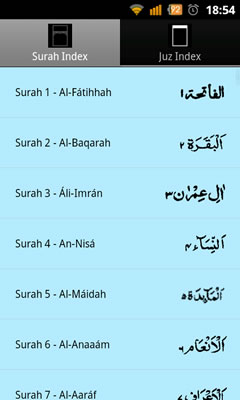 92
18:54
Surah Index
Juz Index
Surah 1 - Al-Fátihhah
الفاتحة ١
Surah 2 - Al-Baqarah
اَلْبَقَرَة ٢
Surah 3 - Áli-Imrán
اٰل عِمْرٰن ٣
Surah 4 - An-Nisá
اَلنِّسَآء ٤
Surah 5 - Al-Máidah
اَلْمَآئِدَة ٥
Surah 6 - Al-Anaaám
اَلْاَنْعَام ٦
Surah 7 - Al-Aaráf
اَلْاَعْرَاف ٧